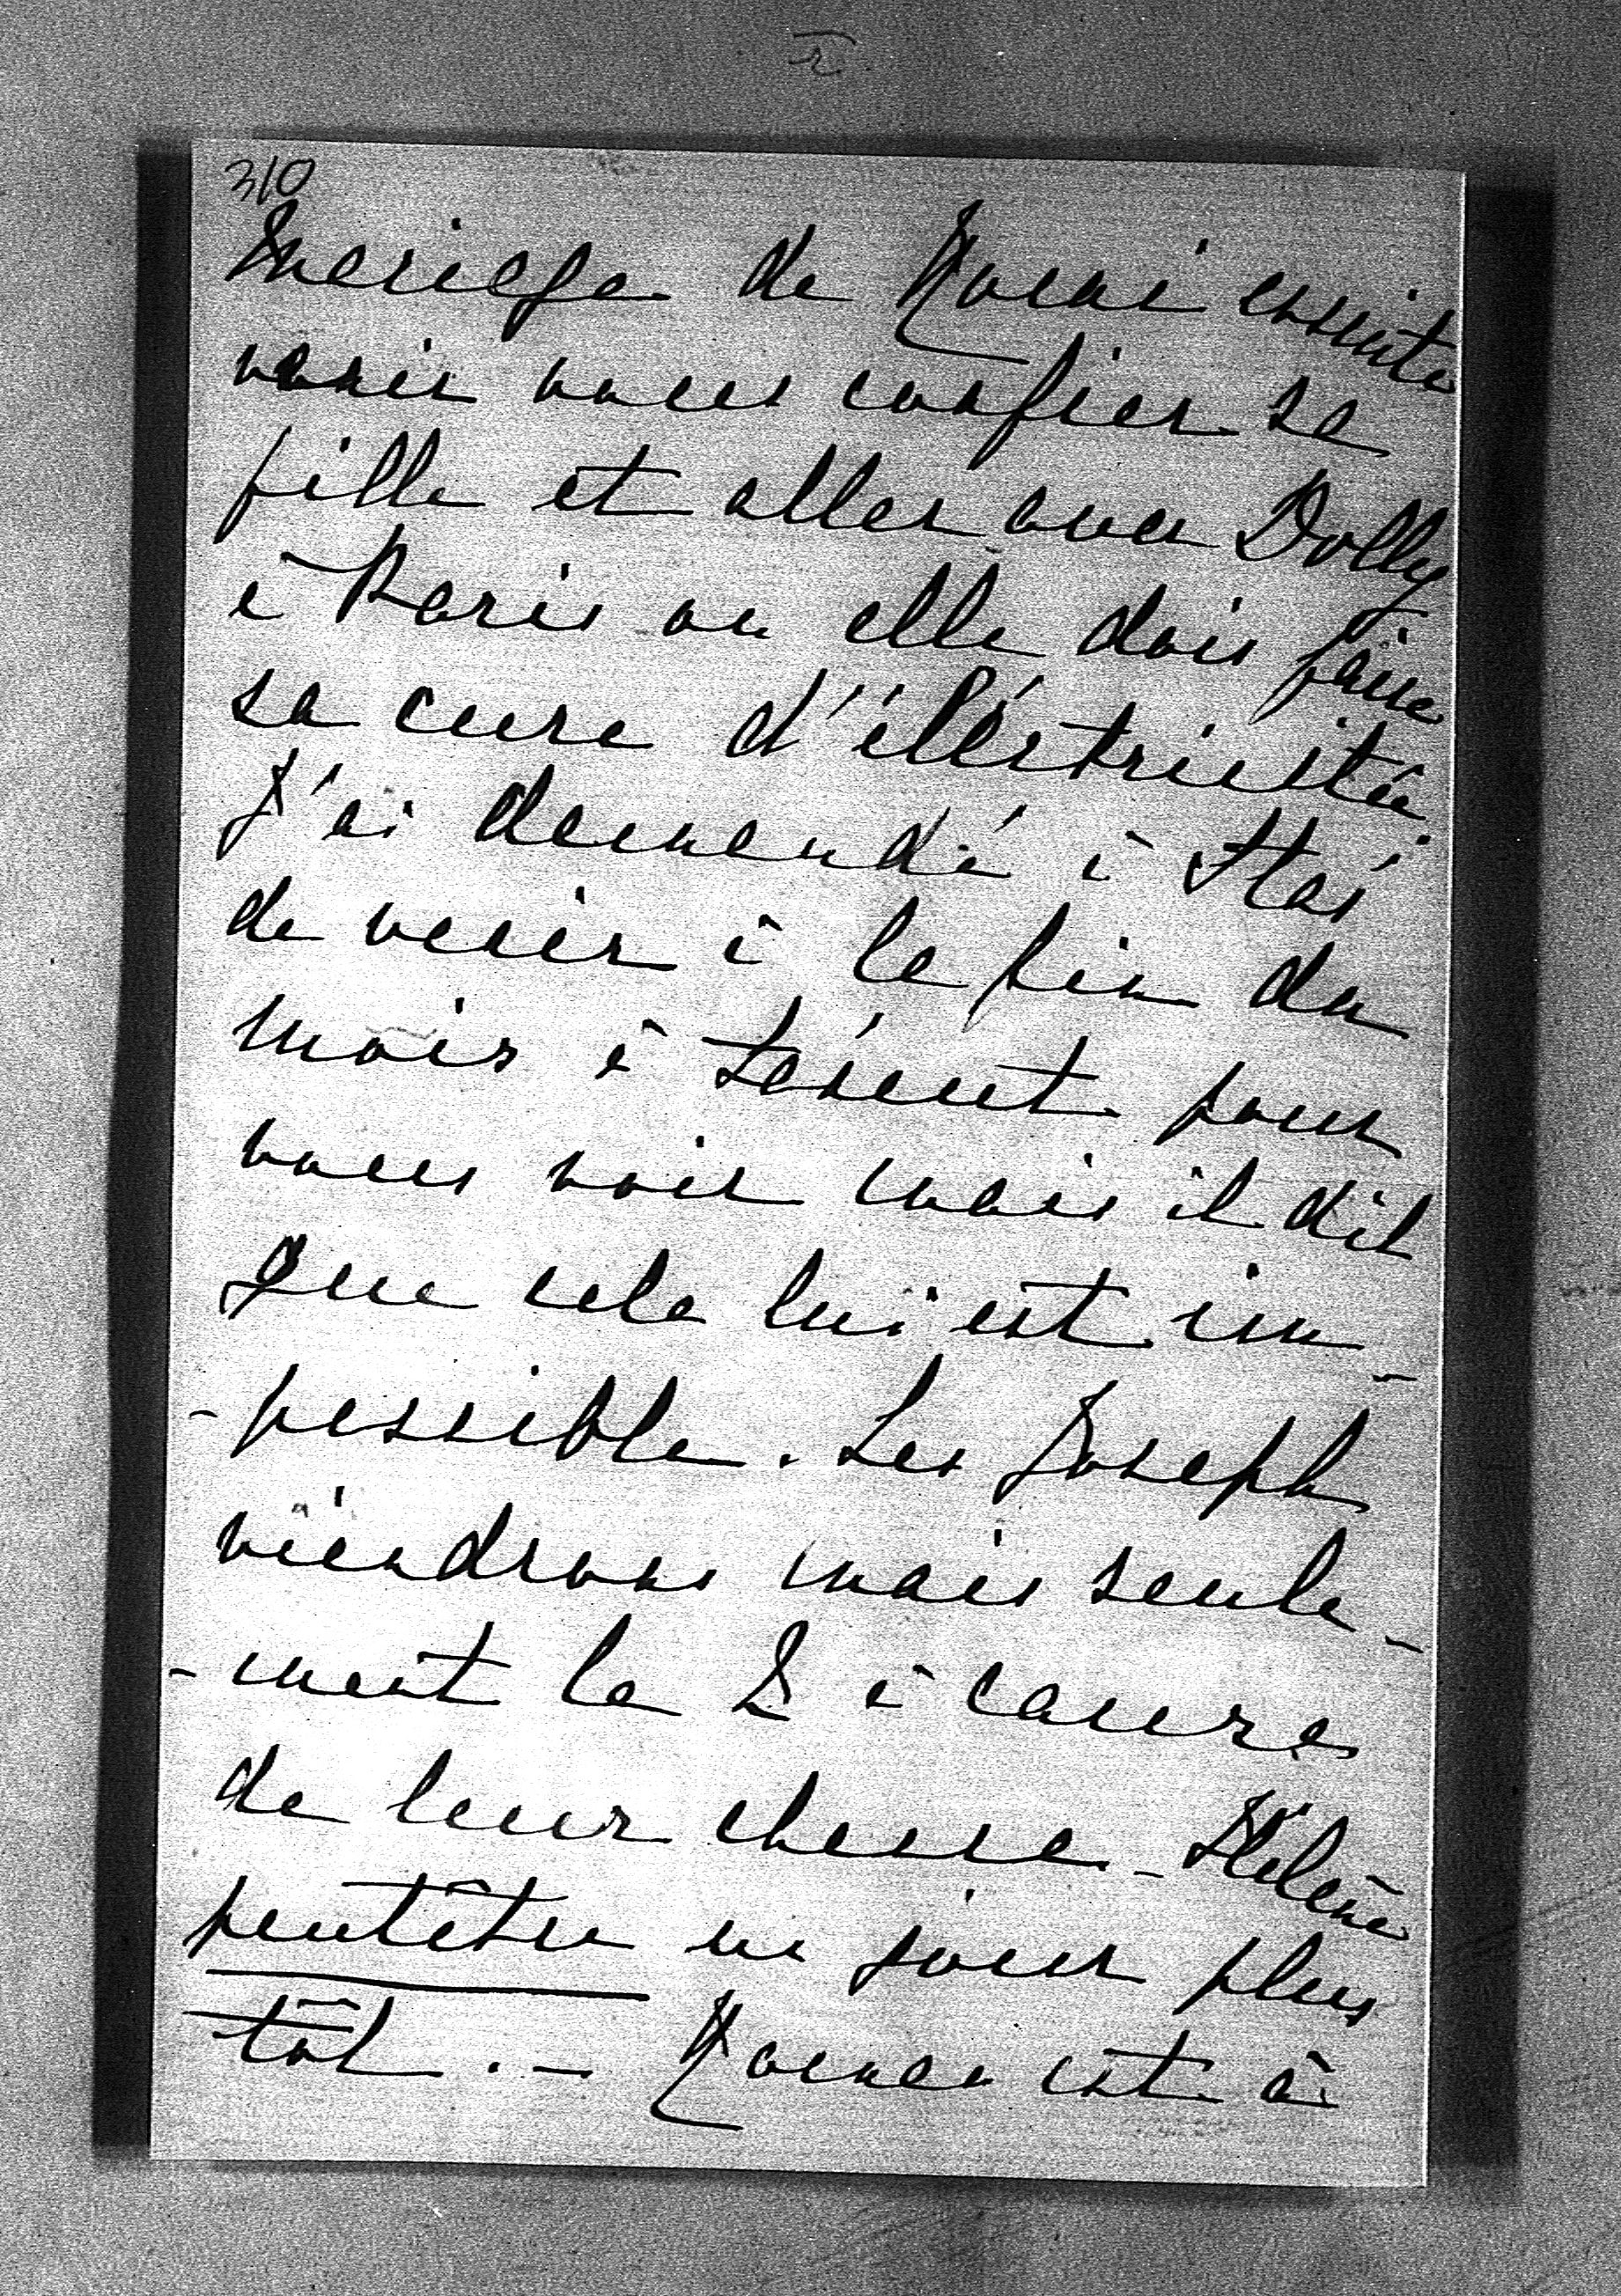 310
Mariage de Noeni ensuite
venir vous confier sa
fille et aller avec Dolly
à Paris ou elle dois faire
sa cure d'éléctricitée.
J'ai demandé à
de venir à la fin du
mois à Lésent pour
vous voir mais il dit
que cela lui est im-
-possible. Les Joseph
viendrons mais seule-
-ment le 2 à cause
de leur chasse - Hélène
peutêtre un jour plus
tôt. - est à